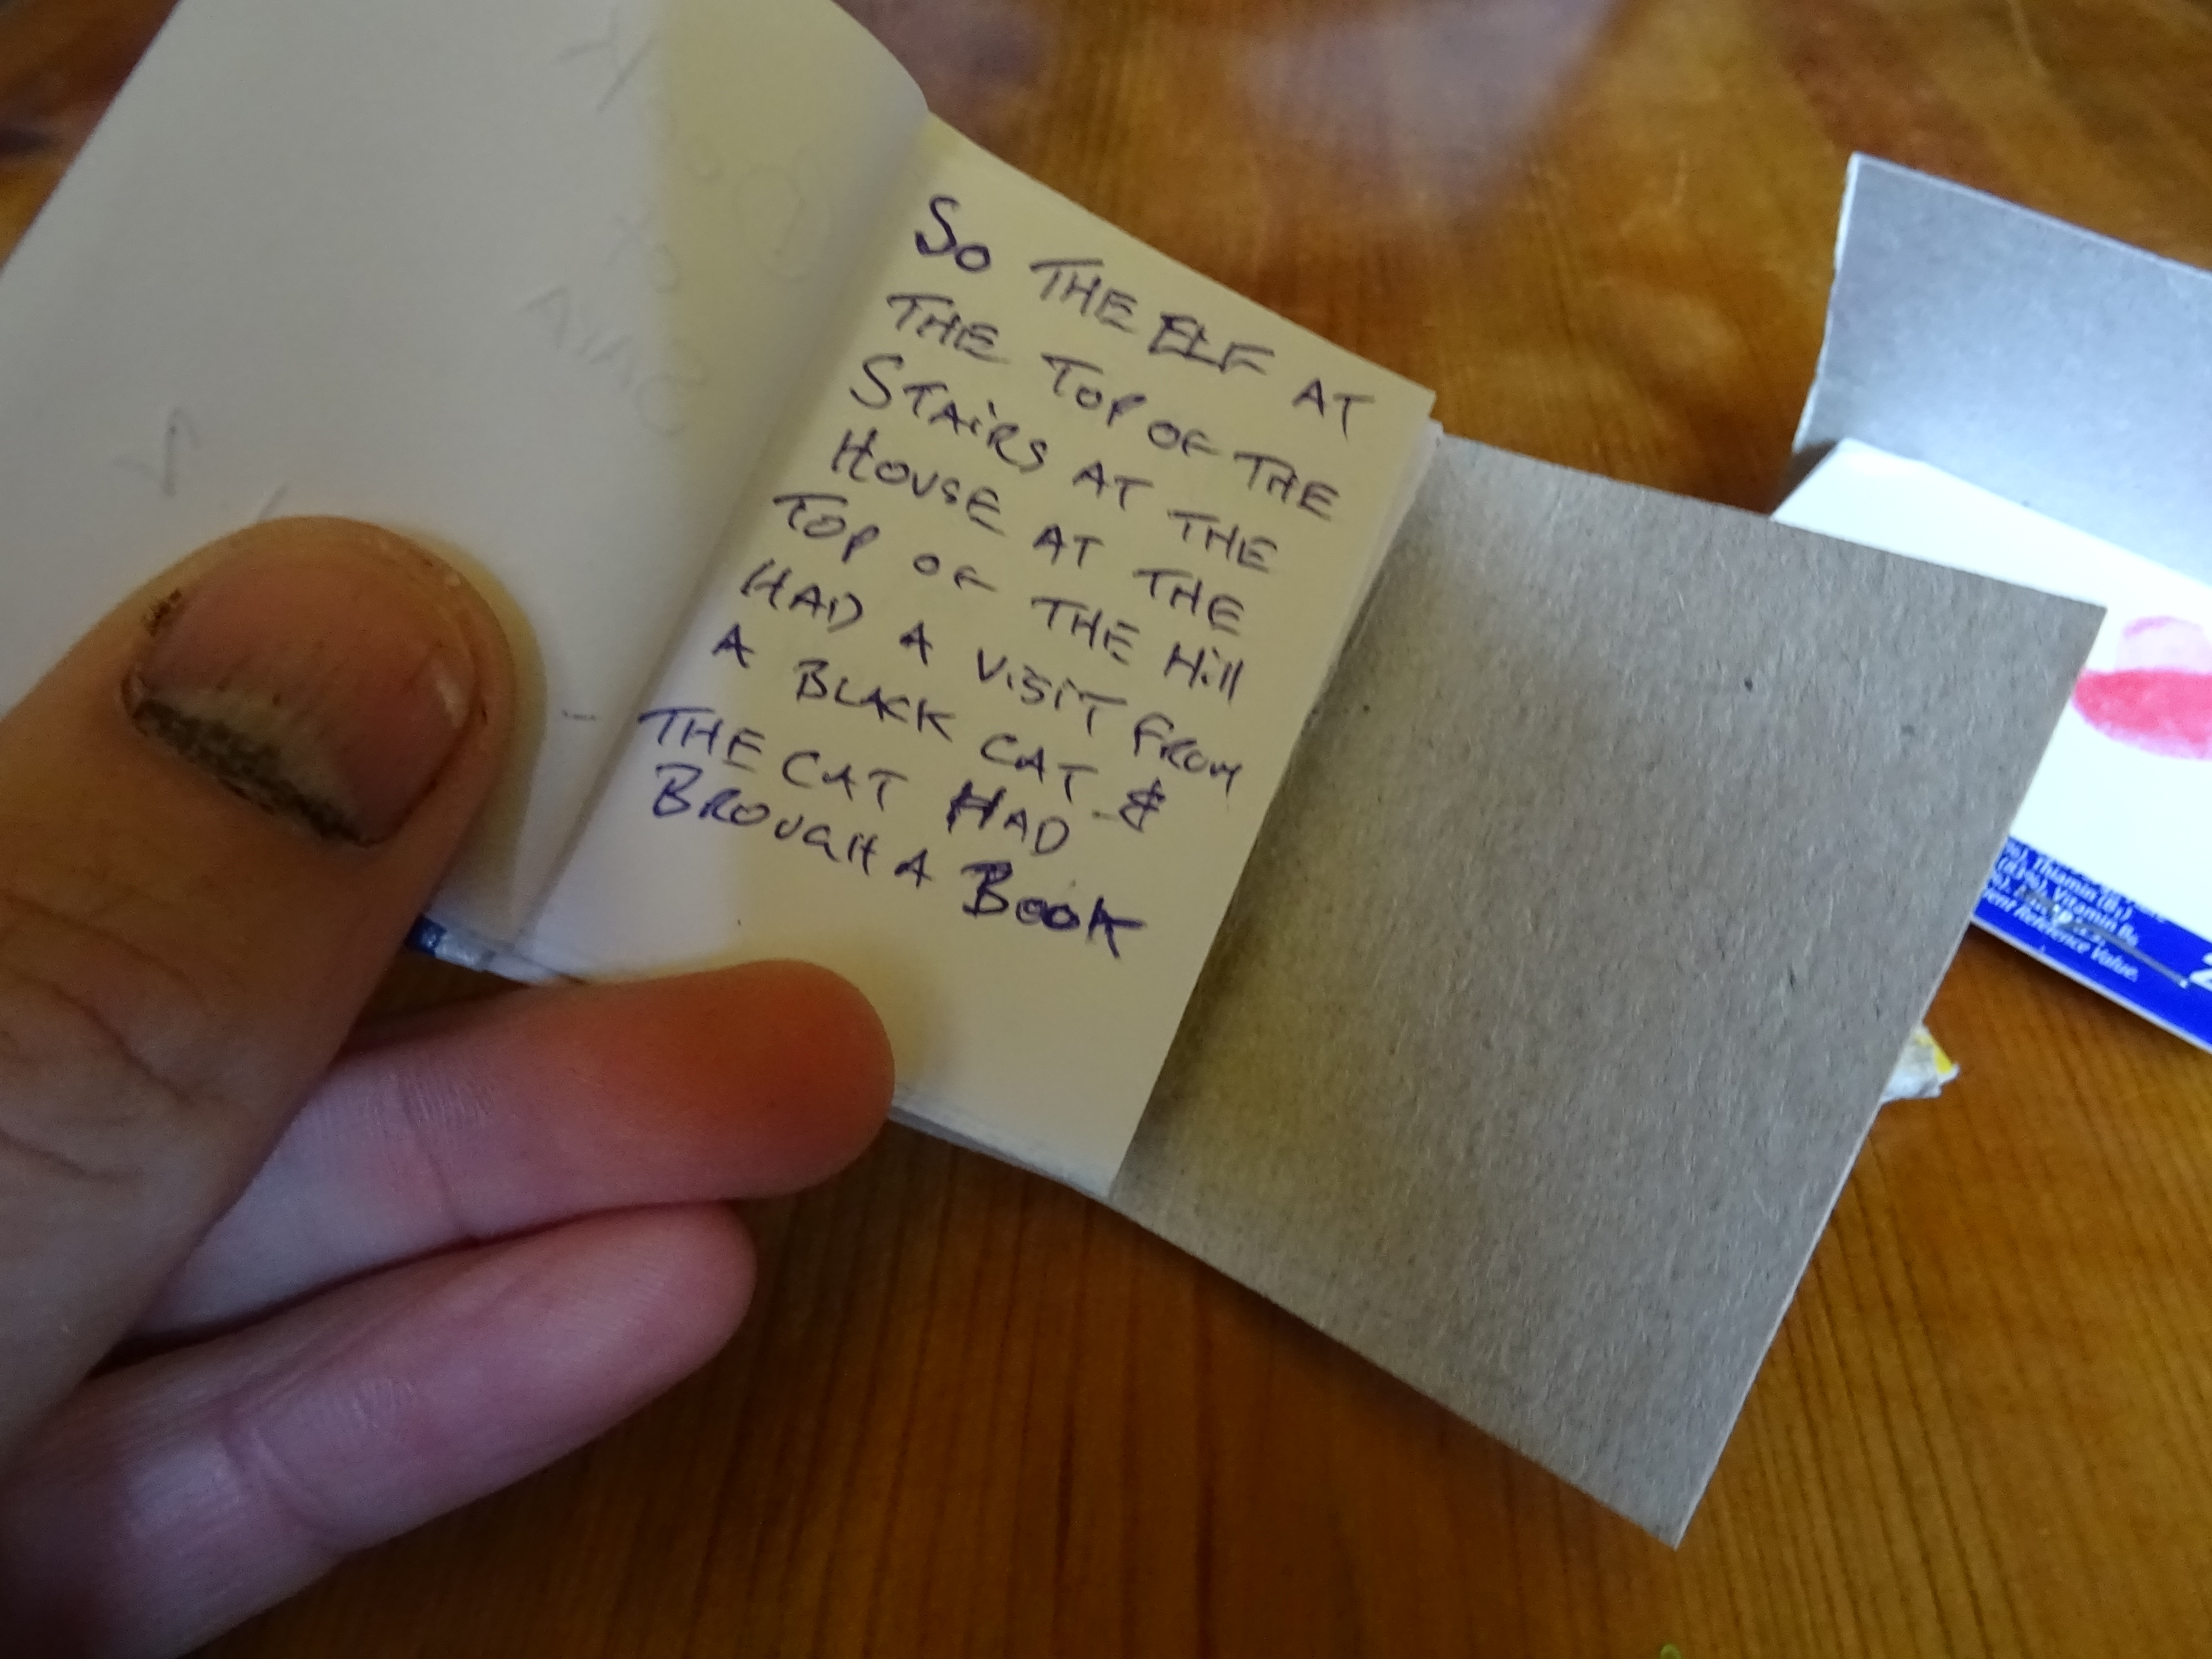 So THE ELF AT
THE TOP OF THE
STAiRS AT THE
HOUSE AT THE
TOP OF THE Hill
HAD A ViSiT FROM
A BLACK CAT &
THE CAT HAD
BROUGH A BOOK
Thiamin (B1)
Vitamin B6
Reference Value.
2